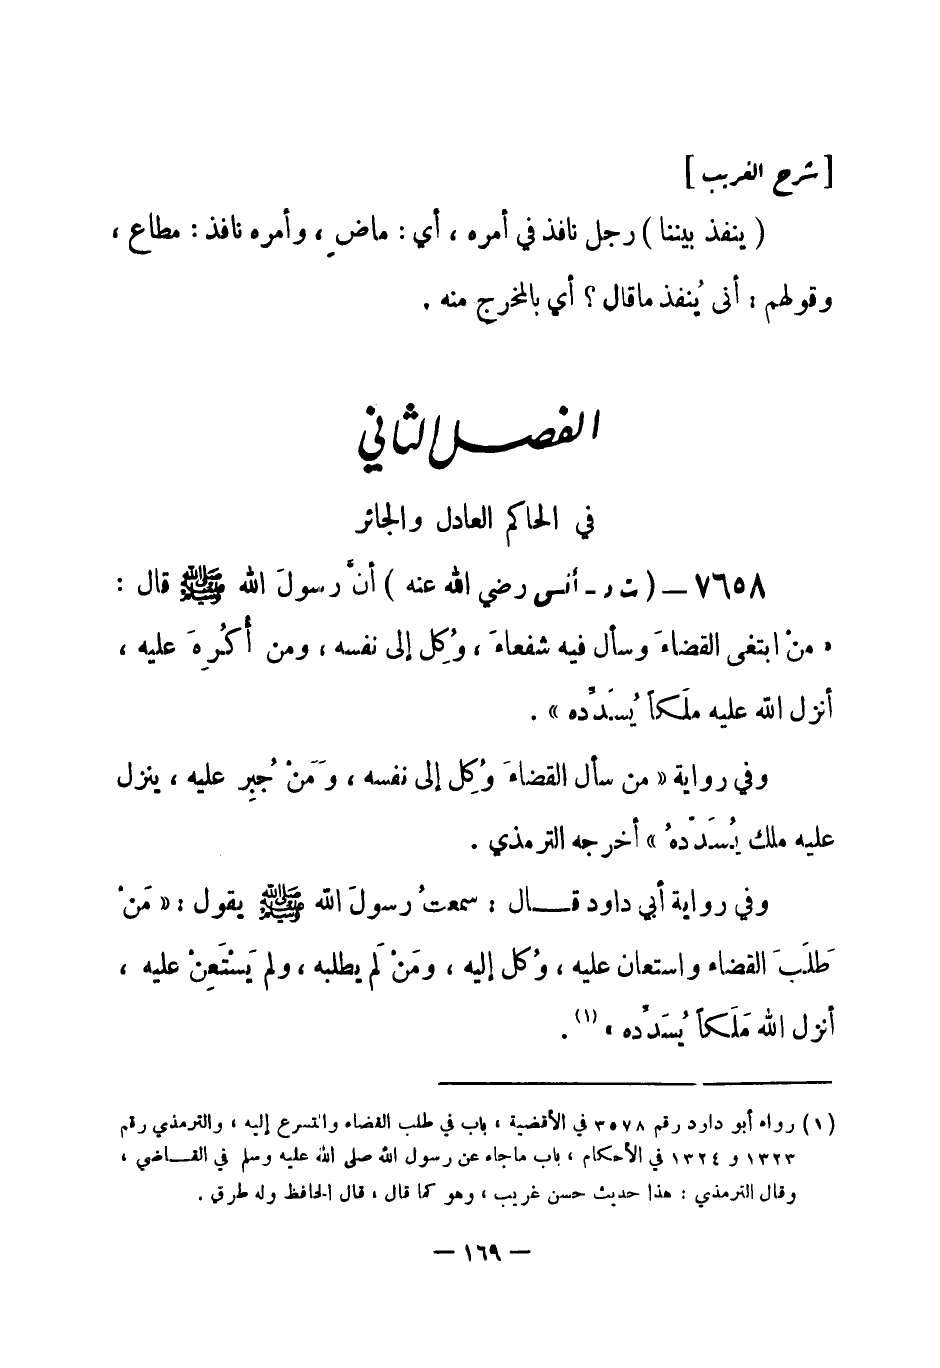 [شرح الغريب]
( ينفذ بيننا ) رجل نافذ في أمره ، أي : ماضٍ ، وأمره نافذ : مطاع ،
وقولهم : أنى يُنفذ ماقال ؟ أي بالمخرج منه .
الفصل الثاني
في الحاكم العادل والجائر
٧٦٥٨ – ( ت د - أنس رضي الله عنه ) أنَّ رسولَ الله ﷺ قال :
« منْ ابتغى القضاءَ وسأل فيه شفعاءَ ، وُكِل إلى نفسه ، ومن أُكْرِهَ عليه ،
أنزل الله عليه ملَكاً يُسدِّده » .
وفي رواية « من سأل القضاءَ وُكِل إلى نفسه ، وَمَنْ جُبِر عليه ، ينزل
عليه ملك يُسَدِّدهُ » أخرجه الترمذي .
وفي رواية أبي داود قـــال : سمعتُ رسولَ الله ﷺ يقول : « مَنْ
طَلَبَ القضاء واستعان عليه ، وُكل إليه ، ومَنْ لَم يطلبه ، ولم يَسْتَعِنْ عليه ،
أنزل الله مَلَكاً يُسَدِّده » (١) .
(١) رواه أبو داود رقم ٣٥٧٨ في الأقضية ، باب في طلب القضاء والتسرع إليه ، والترمذي رقم
١٣٢٣ و ١٣٢٤ في الأحكام ، باب ماجاء عن رسول الله صلى الله عليه وسلم في القـــاضي ،
وقال الترمذي : هذا حديث حسن غريب ، وهو كما قال ، قال الحافظ وله طرق .
— ١٦٩ —